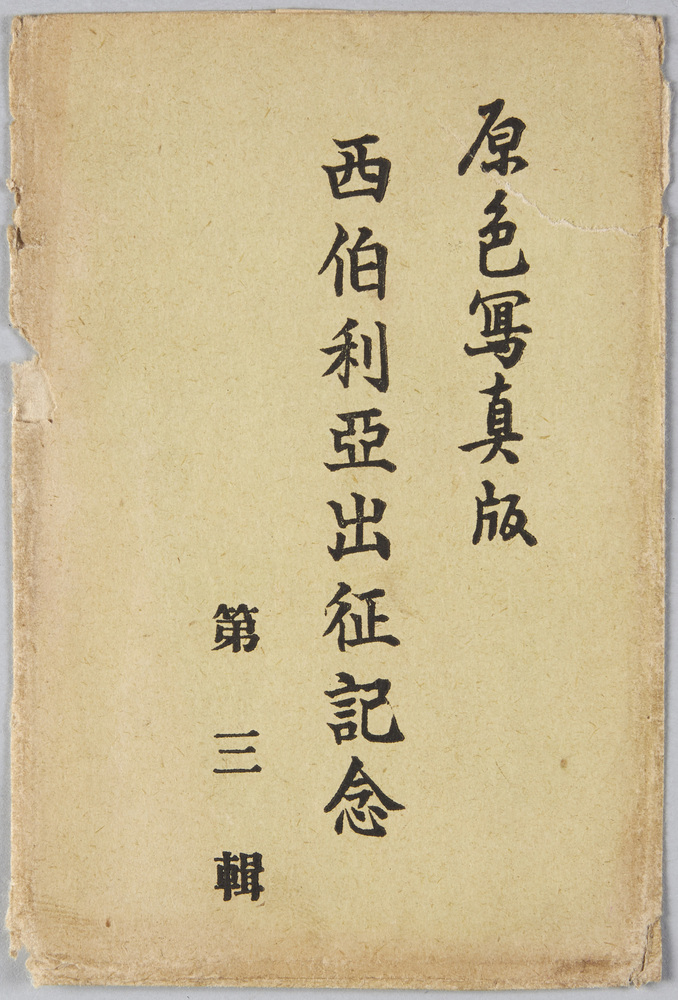 原色写真版
西伯利亞出征記念
第三輯